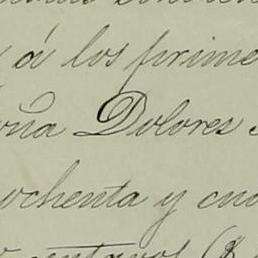 á los prime
oña Dolores
ochenta y cua
centavos ($